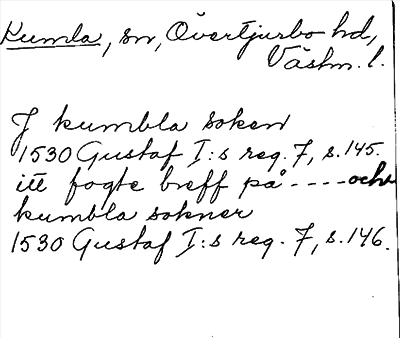 Kumla, sn, Övertjurbo hd,
Västm. l.
J kumbla soken
1530 Gustaf I:s reg. 7, s. 145.
itt fogte breff på ---- och
kumbla sokner
1530 Gustaf I:s reg. 7, s. 146.